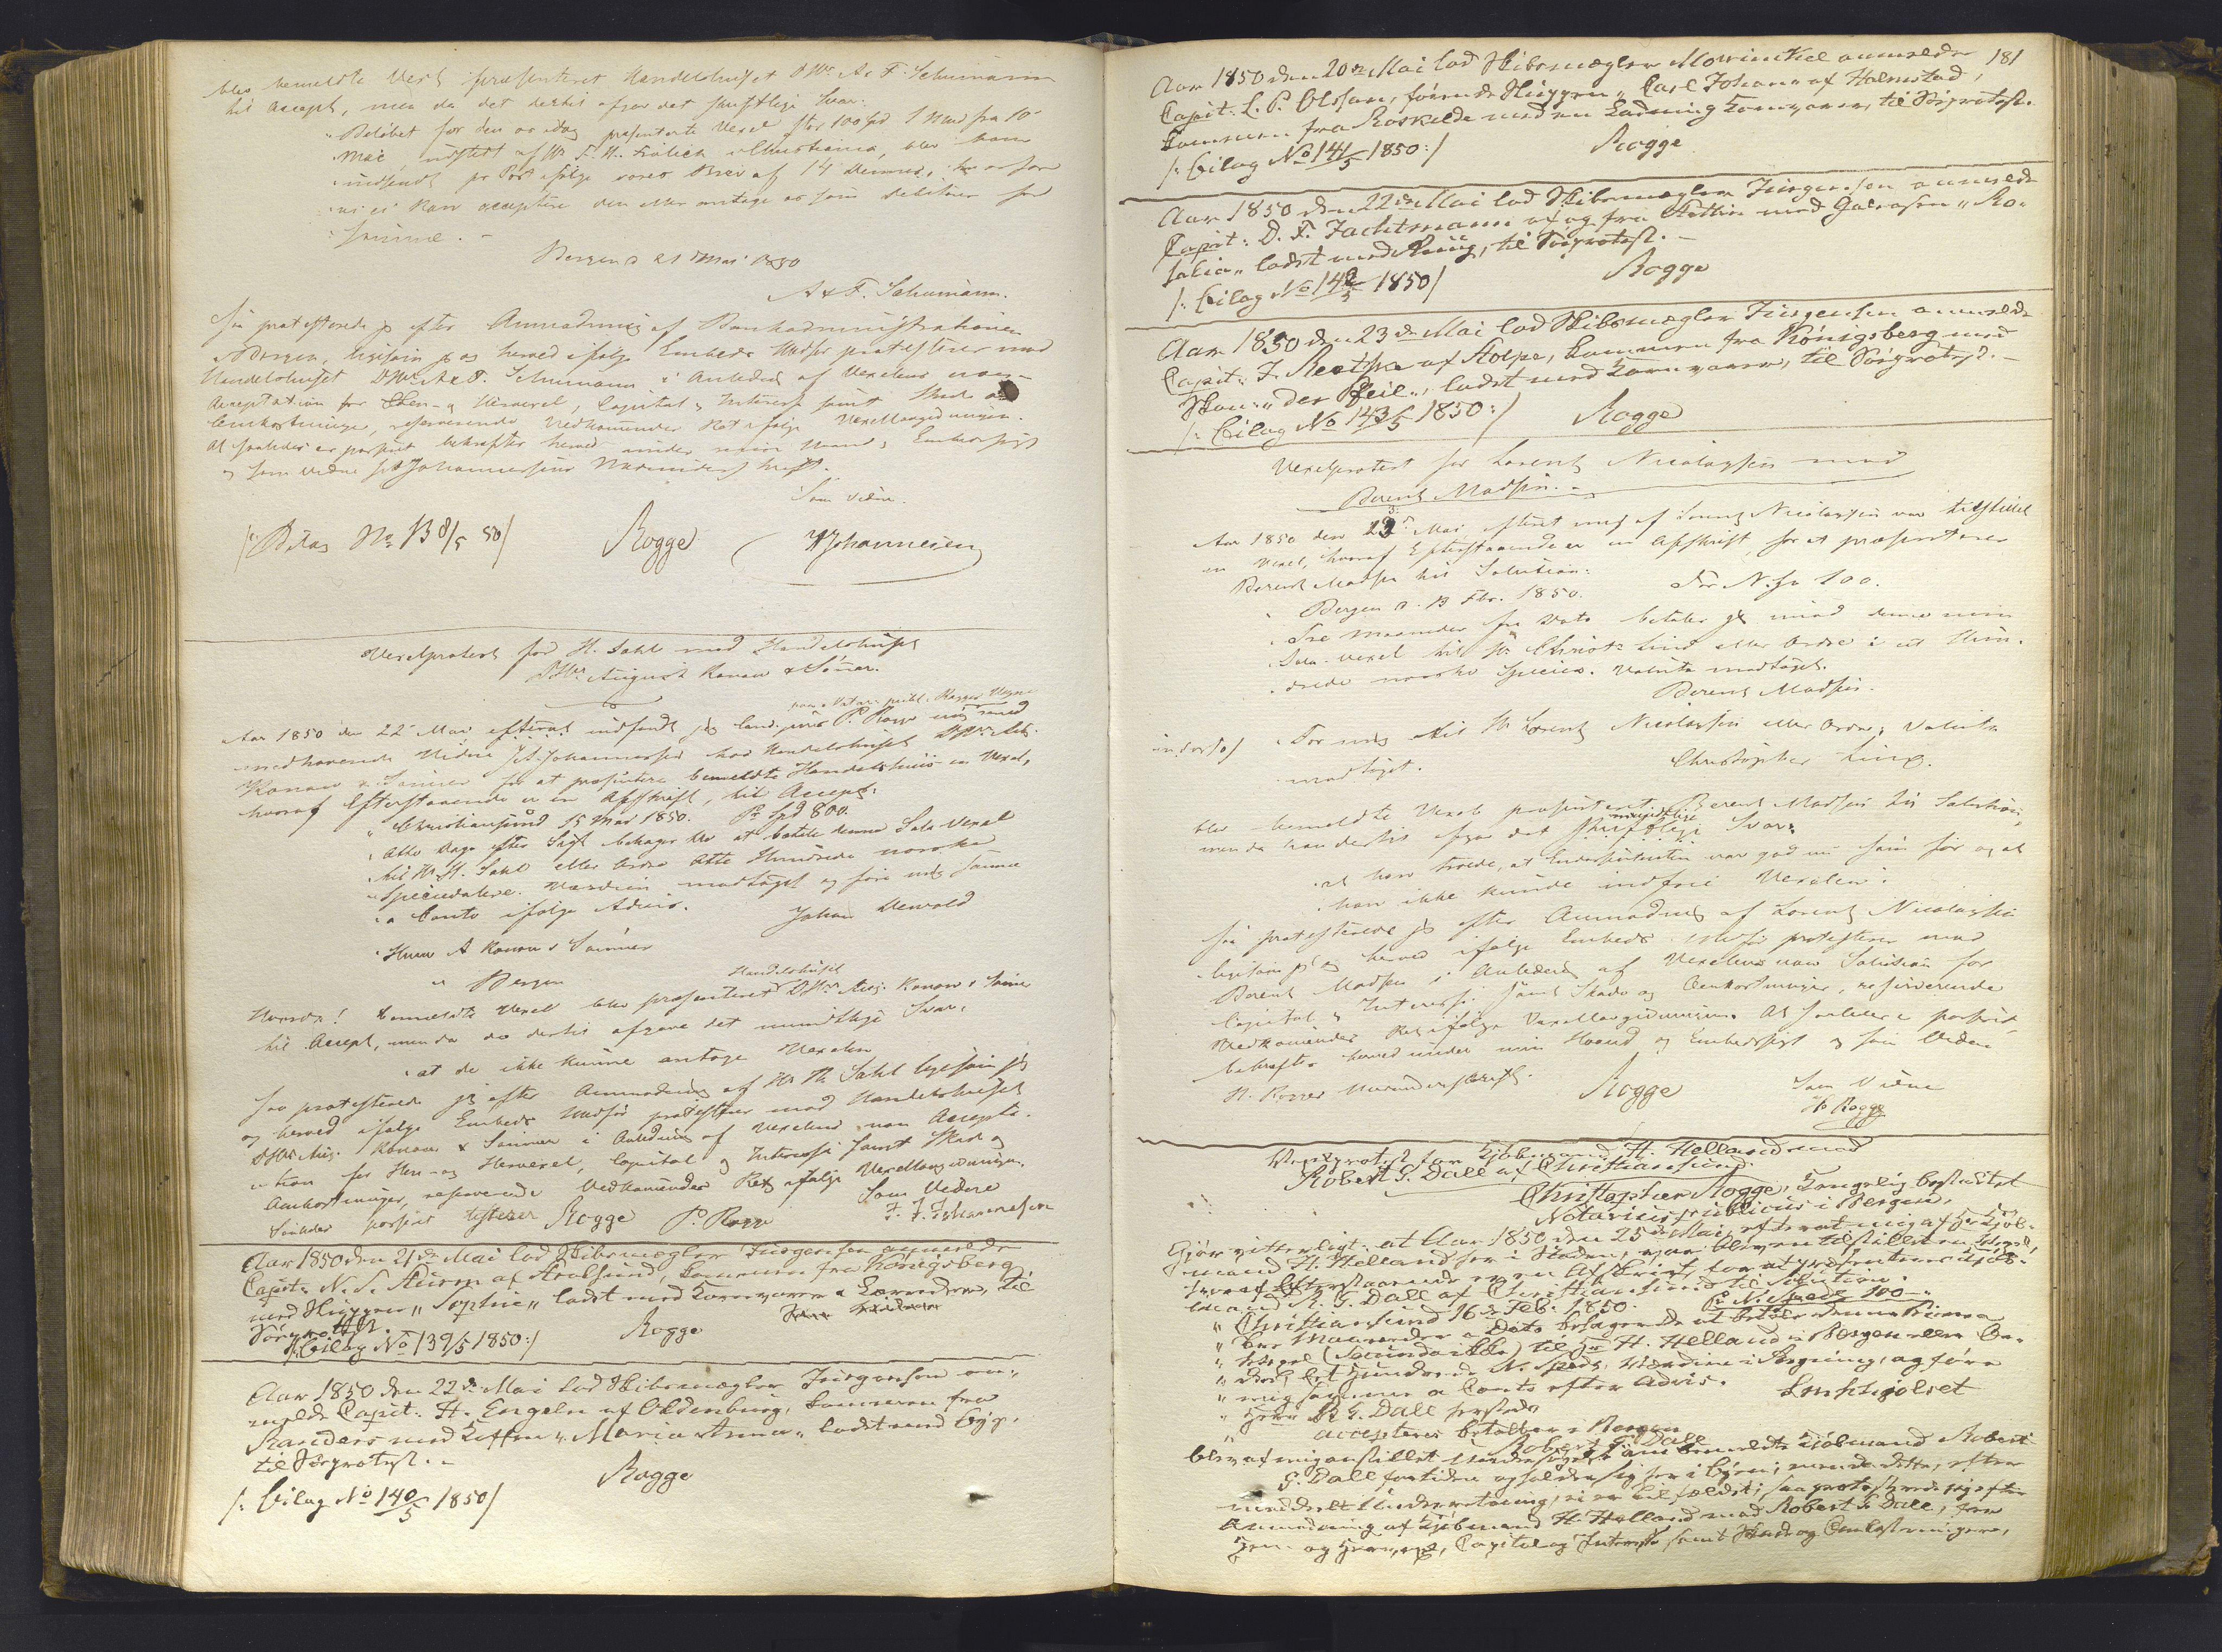 blev bemeldte Vexel præsenteret Handelshuset DHrr A. & F. Schumann
til Accept, men da det dertil afgav det skriftlige Svar:
"Beløbet for den os idag præsenterte Vexel stor 100 Spd 1 Mnd fra 10de
"Mai, udstedt af Hr F. H. Frölich i Christiania, blev ham
"indsendt pr Post ifølge vores Brev af 14 dennes, hvorfor
"vi ei kan acceptere den eller antage os som Debitorer for
"samme. -
Bergen d 21 Mai 1850
A & F. Schumann.
Saa protesterede jeg efter Anmodning af Bankadministrationen
i Bergen, ligesom jeg og herved ifølge Embeds Medfør protesterer mod
Handelshuset DHrr A & F. Schumann i Anledning af Vexelens non-
Acceptation for Hen- og Hervexel, Capital & Interesse samt Skade og
Omkostninger, reserverende Vedkommende Ret ifølge Vexellovgivningen.
At saaledes er passeret bekræfter herved under min Haand & Embedssegl
og som Vidne J. Johannessens Underskrift.
Som Vidne.
/: Bilag No 138/5 50/ Rogge JJohannesen
Vexelprotest for H. Sahl mod Handelshuset
DHrr August Konow & Sönner.
paa Notar: publ. Rogges Vegne
Aar 1850 den 22 Mai efterat indfandt jeg P. Rogge mig med
medhavende Vidne J. Johannessen hos Handelshuset DHrr Aug.
Konow & Sønner for at præsentere bemeldte Handelshuus en Vexel,
hvoraf Efterstaaende er en Afskrift, til Accept:
"Christiansund 15 Mai 1850. Pr Spd 800.
"Otte Dage efter Sigt behager De at betale denne Sola Vexel
"til Hr H. Sahl eller Ordre Otte Hundrede norske
"Speciedalere. Værdien modtaget og före mig samme
"a Conto ifølge Advis. Johan Dewold
"Herrer A Konow & Sönner
"Bergen
Handelshuset
Hvorpaa! bemeldte Vexel blev præsenteret DHrr Aug. Konow & Sønner
til Accept, men da de dertil afgave det mundtlige Svar:
"at de ikke kunne antage Vexelen
saa protesterede jeg efter Anmodning af Hr H. Sahl ligesom jeg
og herved ifølge Embeds Medfør protesterer mod Handelshuset
DHrr Aug. Konow & Sønner i Anledning af Vexelens non Accepta-
ation for Hen- og Hervexel, Capital og Interesse samt Skade og
Omkostninger, reserverende Vedkommendes Ret ifølge Vexellovgivningen.
Som Vidne
Saaledes passeret testerer Rogge P. Rogge J. Johannesen
Aar 1850 den 21de Mai lod Skibsmægler Jürgensen anmelde
Capit: N. S. Sturm af Stralsund, kommen fra Königsberg
med Skuggen "Sophie" ladet med Kornvarer, til
Söprotest.
/: Bilag No 139/5 1850:/ Rogge
Aar 1850 den 22de Mai lod Skibsmægler Jürgensen an-
melde Capit: H. Engeln af Oldenburg, kommen fra
Randers med Koffen "Maria Anna" ladet med Byg,
til Söprotest. -
/: Bilag No 140/5 1850/ Rogge
181
Aar 1850 den 20de Mai lod Skibsmægler Mowinckel anmelde
Capit: L. P. Olsson, förende Skuggen "Carl Johan" af Halmstad,
kommen fra Roskilde med en Ladning Kornvarer, til Söprotest.
/: Bilag No 141/5 1850:/ Rogge
Aar 1850 den 22de Mai lod Skibsmægler Jürgensen anmelde
Capit: D. F. Jachtmann af og fra Stettin med Galeasen "Ro-
salia" ladet med Rug, til Söprotest. -
/: Bilag No 142/5 1850/ Rogge
Aar 1850 den 23de Mai lod Skibsmægler Jürgensen anmelde
Capit: J. Reetske af Stolpe, kommen fra Königsberg med
Skon: "der Pfeil", ladet med Kornvarer, til Söprotest. -
/: Bilag No 143/5 1850:/ Rogge
Vexelprotest for Lorentz Nicolaysen mod
Berent Madsen. -
Aar 1850 den 23de Mai efterat mig af Lorentz Nicolaysen var tilstillet
en Vexel, hvoraf Efterstaaende er en Afskrift, for at præsenteres
Berent Madsen til Solution:
"Bergen d. 13 Fbr. 1850. For N. Sp 100.
"Tre Maaneder fra Dato betaler jeg mod denne min
"Sola-Vexel til Hr Christ: Ling eller Ordre et Hun-
"drede norske Species. Valuta modtaget.
Berent Madsen.
indors:/ "For mig til Hr Lorentz Nicolaysen eller Ordre, Valuta
"modtaget. Christopher Ling.
blev bemeldte Vexel præsenteret Berent Madsen til Solution,
mundtlige
men da han dertil afgav det skriftlige Svar:
"at han troede, at Endossenten var god nu som før og at
"han ikke kunde indfrie Vexelen".
saa protesterede jeg efter Anmodning af Lorentz Nicolaysen
ligesom jeg og herved ifølge Embeds Medfør protesterer mod
Berent Madsen i Anledning af Vexelens non Solution for
Capital & Interesse samt Skade og Omkostninger, reserverende
Vedkommendes Ret ifølge Vexellovgivningen. At saaledes er passeret,
bekræftes herved under min Haand og Embedssegl og som Vidne
H. Rogges Underskrift. Rogge Som Vidne
H Rogge
Vexelprotest for Kjöbmand H. Helland mod
Robert G. Dall af Christiansund.
Christopher Rogge, Kongelig bestaltet
Notarius publicus i Bergen,
Gjör vitterligt: at Aar 1850 den 25de Mai, efterat mig af Hr Kjöb-
mand H. Helland her i Staden, var bleven tilstillet en Vexel,
hvoraf Efterstaaende er en Afskrift, for at præsenteres Kjöb-
mand R. G. Dall af Christiansund til Solution:
"Christiansund 16de Feb: 1850. Pr N. Spd 100 -
"Tre Maaneder a Dato behager De at betale denne Prima
"Vexel (Secunda ikke) til Hr H. Helland i Bergen eller Or-
"dre, Et Hundrede N. Spds, Værdien i Regning, og före
"mig samme a Conto efter Advis. Lmkhjölset
"Herr R G. Dall sersteds
" accepteres betalbar i Bergen
Robert G. Dall
blev af mig anstillet Undersögelse om bemeldte Kjöbmand Robert
G. Dall fortiden opholder sig her i Byen; men da dette, efter
meddeelt Underretning, ei er Tilfældet; saa protesterede jeg efter
Anmodning af Kjöbmand H. Helland mod Robert G. Dall, for
Hen- og Hervexel, Capital og Interesse samt Skade og Omkostninger,